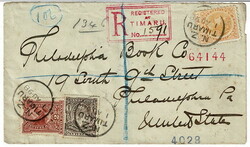 REGISTERED
TIMARU
R
No. 1591
Philadelphia Book Co
64144
19 South 9th Street
Philadelphia Pa
United States
4028